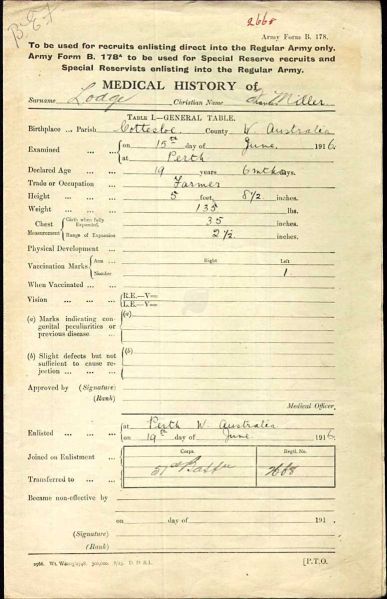 2668
B. E. F
Army Form B. 178.
To be used for recruits enlisting direct into the Regular Army only.
Army Form B. 178ᴬ to be used for Special Reserve recruits and
Special Reservists enlisting into the Regular Army.
MEDICAL HISTORY of
Surname Lodge Christian Name Miller
TABLE I.—GENERAL TABLE.
Birthplace ... Parish Cottesloe County W. Australia
Examined ... ... ... on 15th day of June 1916
at Perth
Declared Age ... ... 19 years days.
Trade or Occupation ... Farmer
Height ... ... ... 5 feet, 8½ inches.
Weight ... ... ... 135 lbs.
Chest Measurement Girth when fully Expanded. 35 inches.
Range of Expansion 2½ inches.
Physical Development ...
Right Left
Vaccination Marks Arm ...
Number 1
When Vaccinated ... ...
Vision ... ... ... R.E.—V=
L.E.—V=
(a) Marks indicating congenital peculiarities or previous disease ... (a)
(b) Slight defects but not sufficient to cause rejection ... ... ... (b)
Approved by (Signature)
(Rank)
Medical Officer.
Enlisted ... ... ... at Perth W. Australia
on 19th day of June 1916
Corps. Regtl. No.
Joined on Enlistment ... 51st Battn 2668
Transferred to ... ...
Became non-effective by
on day of 191
(Signature)
(Rank)
[P.T.O.